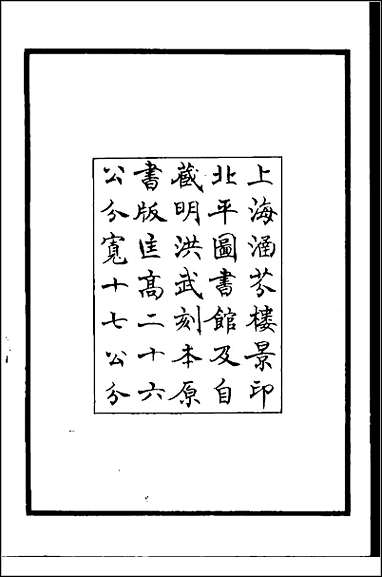 上海涵芬樓景印
北平圖書館及自
藏明洪武刻本原
書版匡高二十六
公分寬十七公分